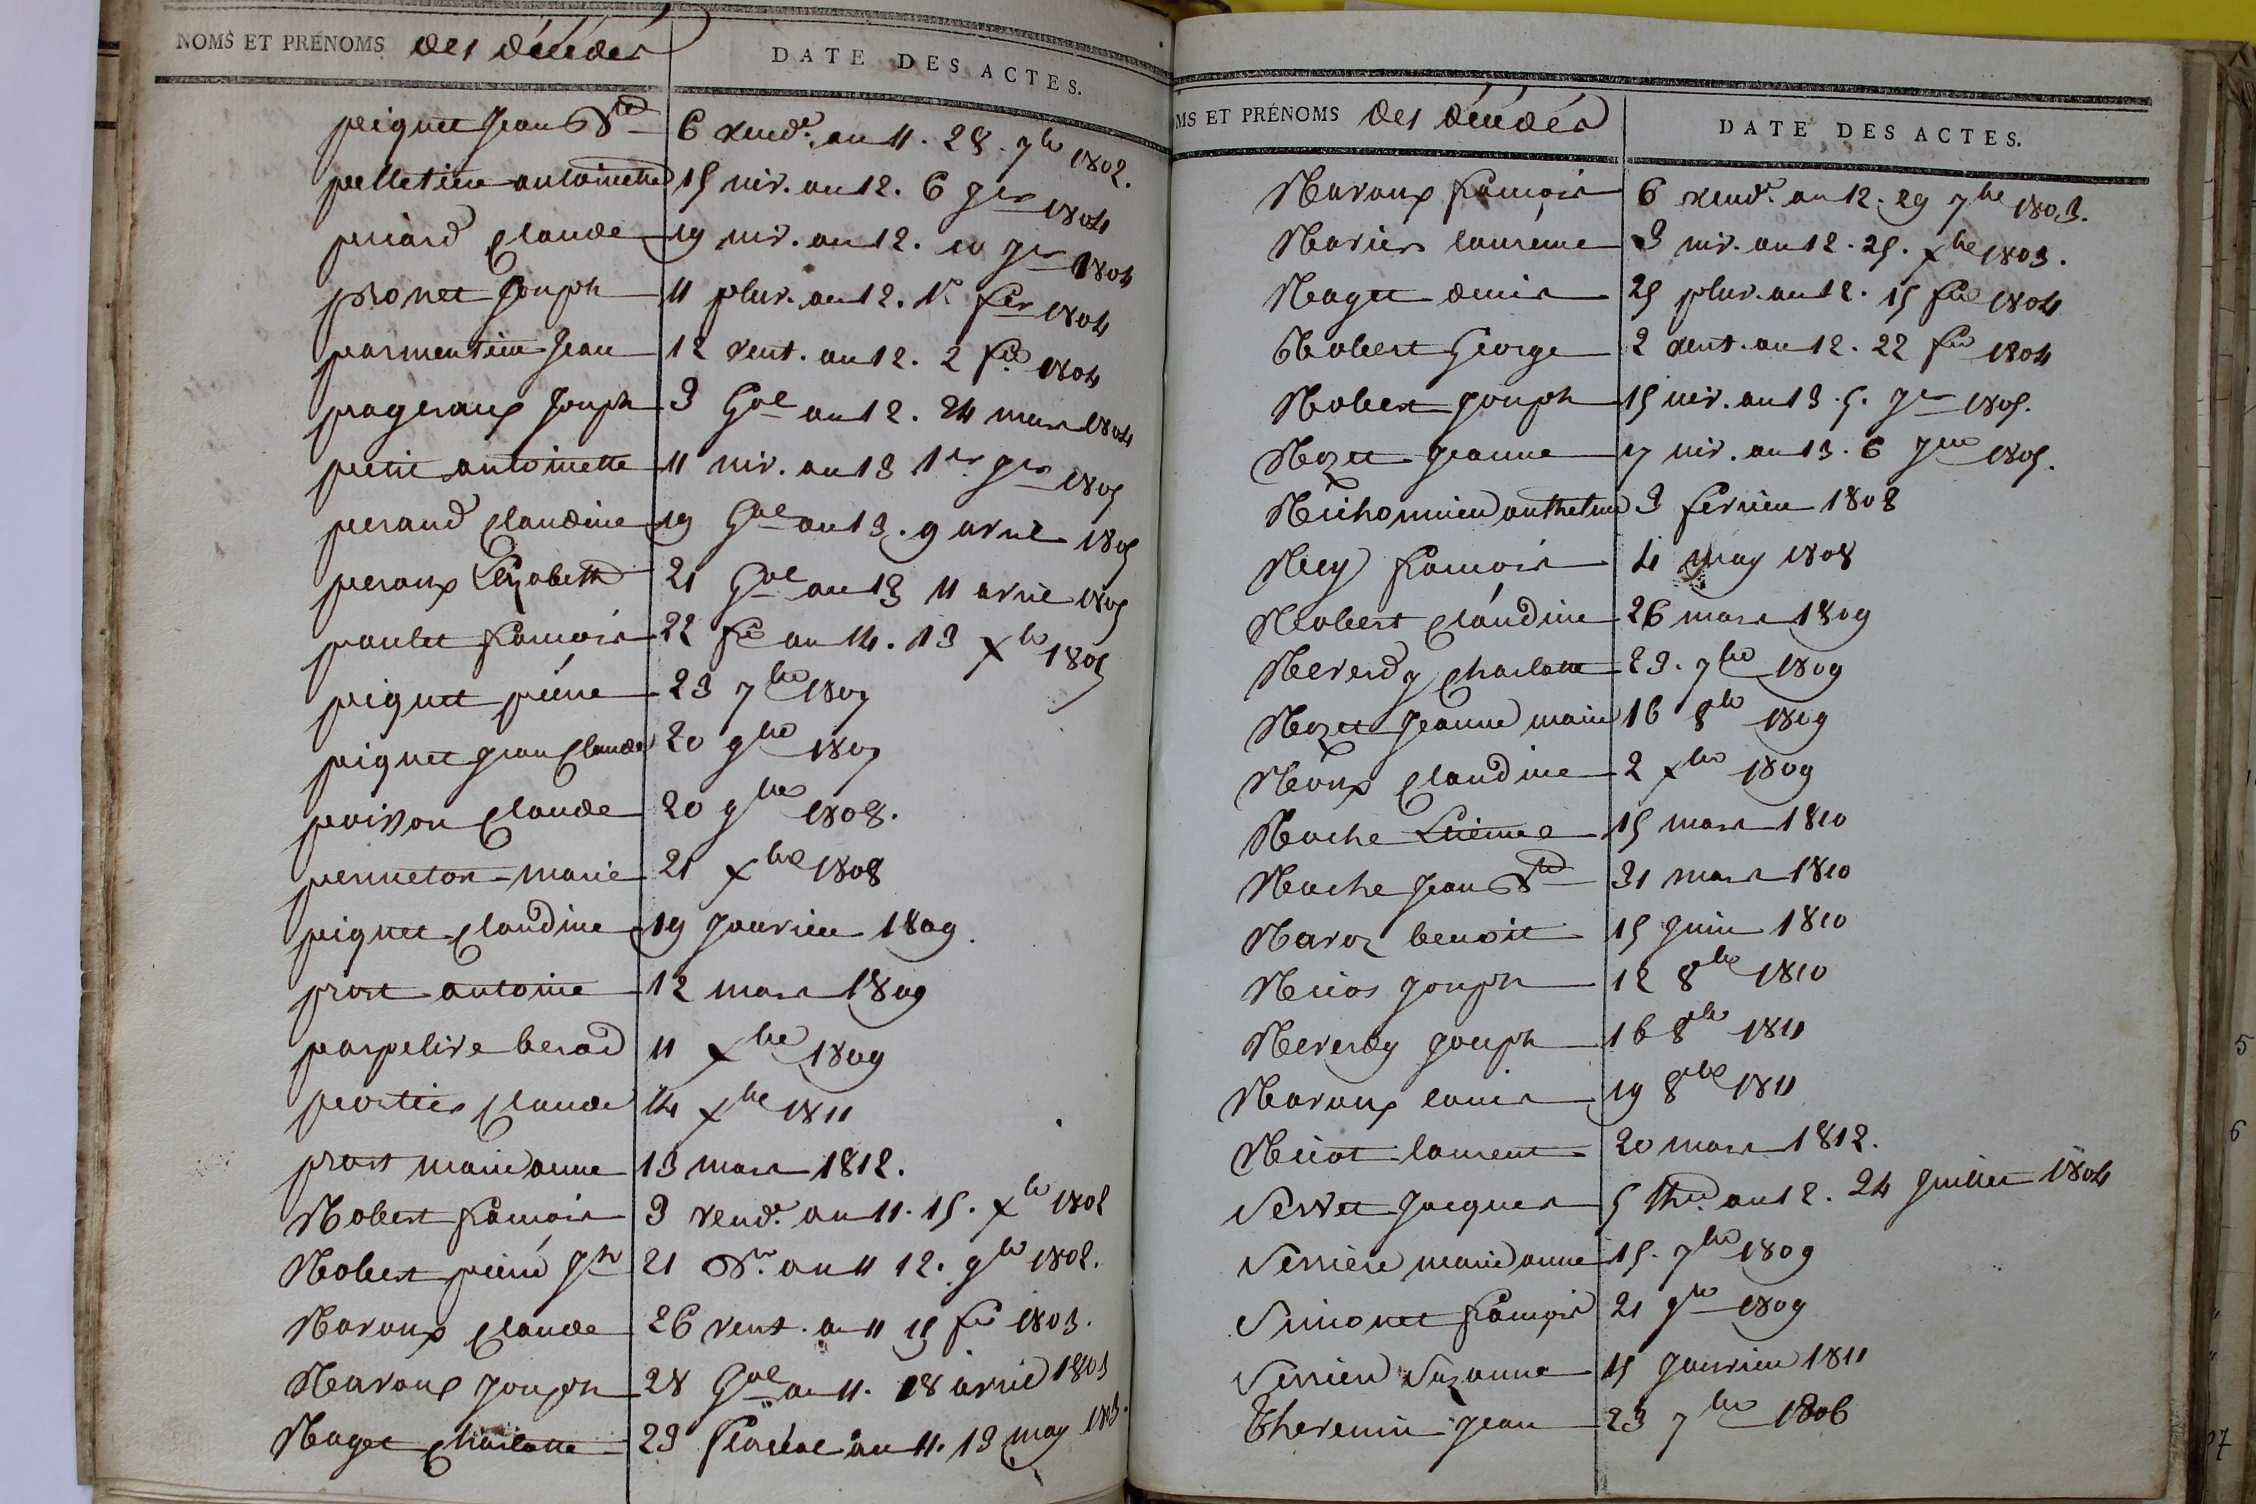 NOMS ET PRÉNOMS des décédés
DATE DES ACTES.
peignet Jean Bte 6 vendre. an 11. 28. 7bre 1802.
pelletier antoinette 15 niv. an 12. 6 Jer 1804
périard Claude 19 niv. an 12. 10 Jer 1804
pronet Joseph 11 pluv. an 12. 1r. fer 1804
parmentier Jean 12 vent. an 12. 2 fer 1804
prageraux Joseph 3 Gal an 12. 24 mars 1804
petit antoinette 11 niv. an 13 1er Jer 1805
peraud Claudine 19 Gal an 13. 9 avril 1805
peraux Elizabeth 21 Gal an 13 11 avril 1805
paulet francois 22 fre an 14. 13 Xbre 1805
peignet pierre 23 7bre 1807
peignet Jean Claude 20 9bre 1807
poisson Claude 20 9bre 1808.
perneton marie 21 Xbre 1808
peignet Claudine 19 Janvier 1809.
prost antoine 12 mars 1809
11 Xbre 1809
portier Claude 14 Xbre 1811
prost marie anne 13 mars 1812.
Robert francois 3 vendre. an 11. 15. Xbre 1802
Robert pierre Jph 21 Bre. an 11 12. 9bre 1802.
Raroux Claude 26 vent. an 11 15 fer 1803.
Raroux Joseph 28 Gal an 11. 18 avril 1803
Raget Charlotte 23 floréal an 11. 13 may 1803.
MS ET PRÉNOMS des décédés
DATE DES ACTES.
Raroux francois 6 vendre. an 12. 29 7bre 1803.
Rarier laurence 3 niv. an 12. 25. Xbre 1803.
Raget denis 25 pluv. an 12. 15 fer 1804
Robert George 2 vent. an 12. 22 fer 1804
Robert Joseph 15 niv. an 13. 5. Jer 1805.
Rozet Jeanne 17 niv. an 13. 6 Jer 1805.
3 fevrier 1808
Rey francois 4 may 1808
Robert Claudine 26 mars 1809
Reverdy Charlotte 23. 7bre 1809
Rozet Jeanne marie 16 8bre 1809
Roux Claudine 2 Xbre 1809
Roche Etienne 15 mars 1810
Roche Jean Bte 31 mars 1810
Raroz benoit 15 Juin 1810
Joseph 12 8bre 1810
Reverdy Joseph 16 8bre 1811
Raroux louis 19 8bre 1811
laurent 20 mars 1812.
Servet Jacques 5 thr. an 12. 24 Juillet 1804
Serriere marie anne 15. 7bre 1809
Simonet francois 21 9bre 1809
Serrier Suzanne 15 Janvier 1811
Thevenin Jean 23 7bre 1806
5
6